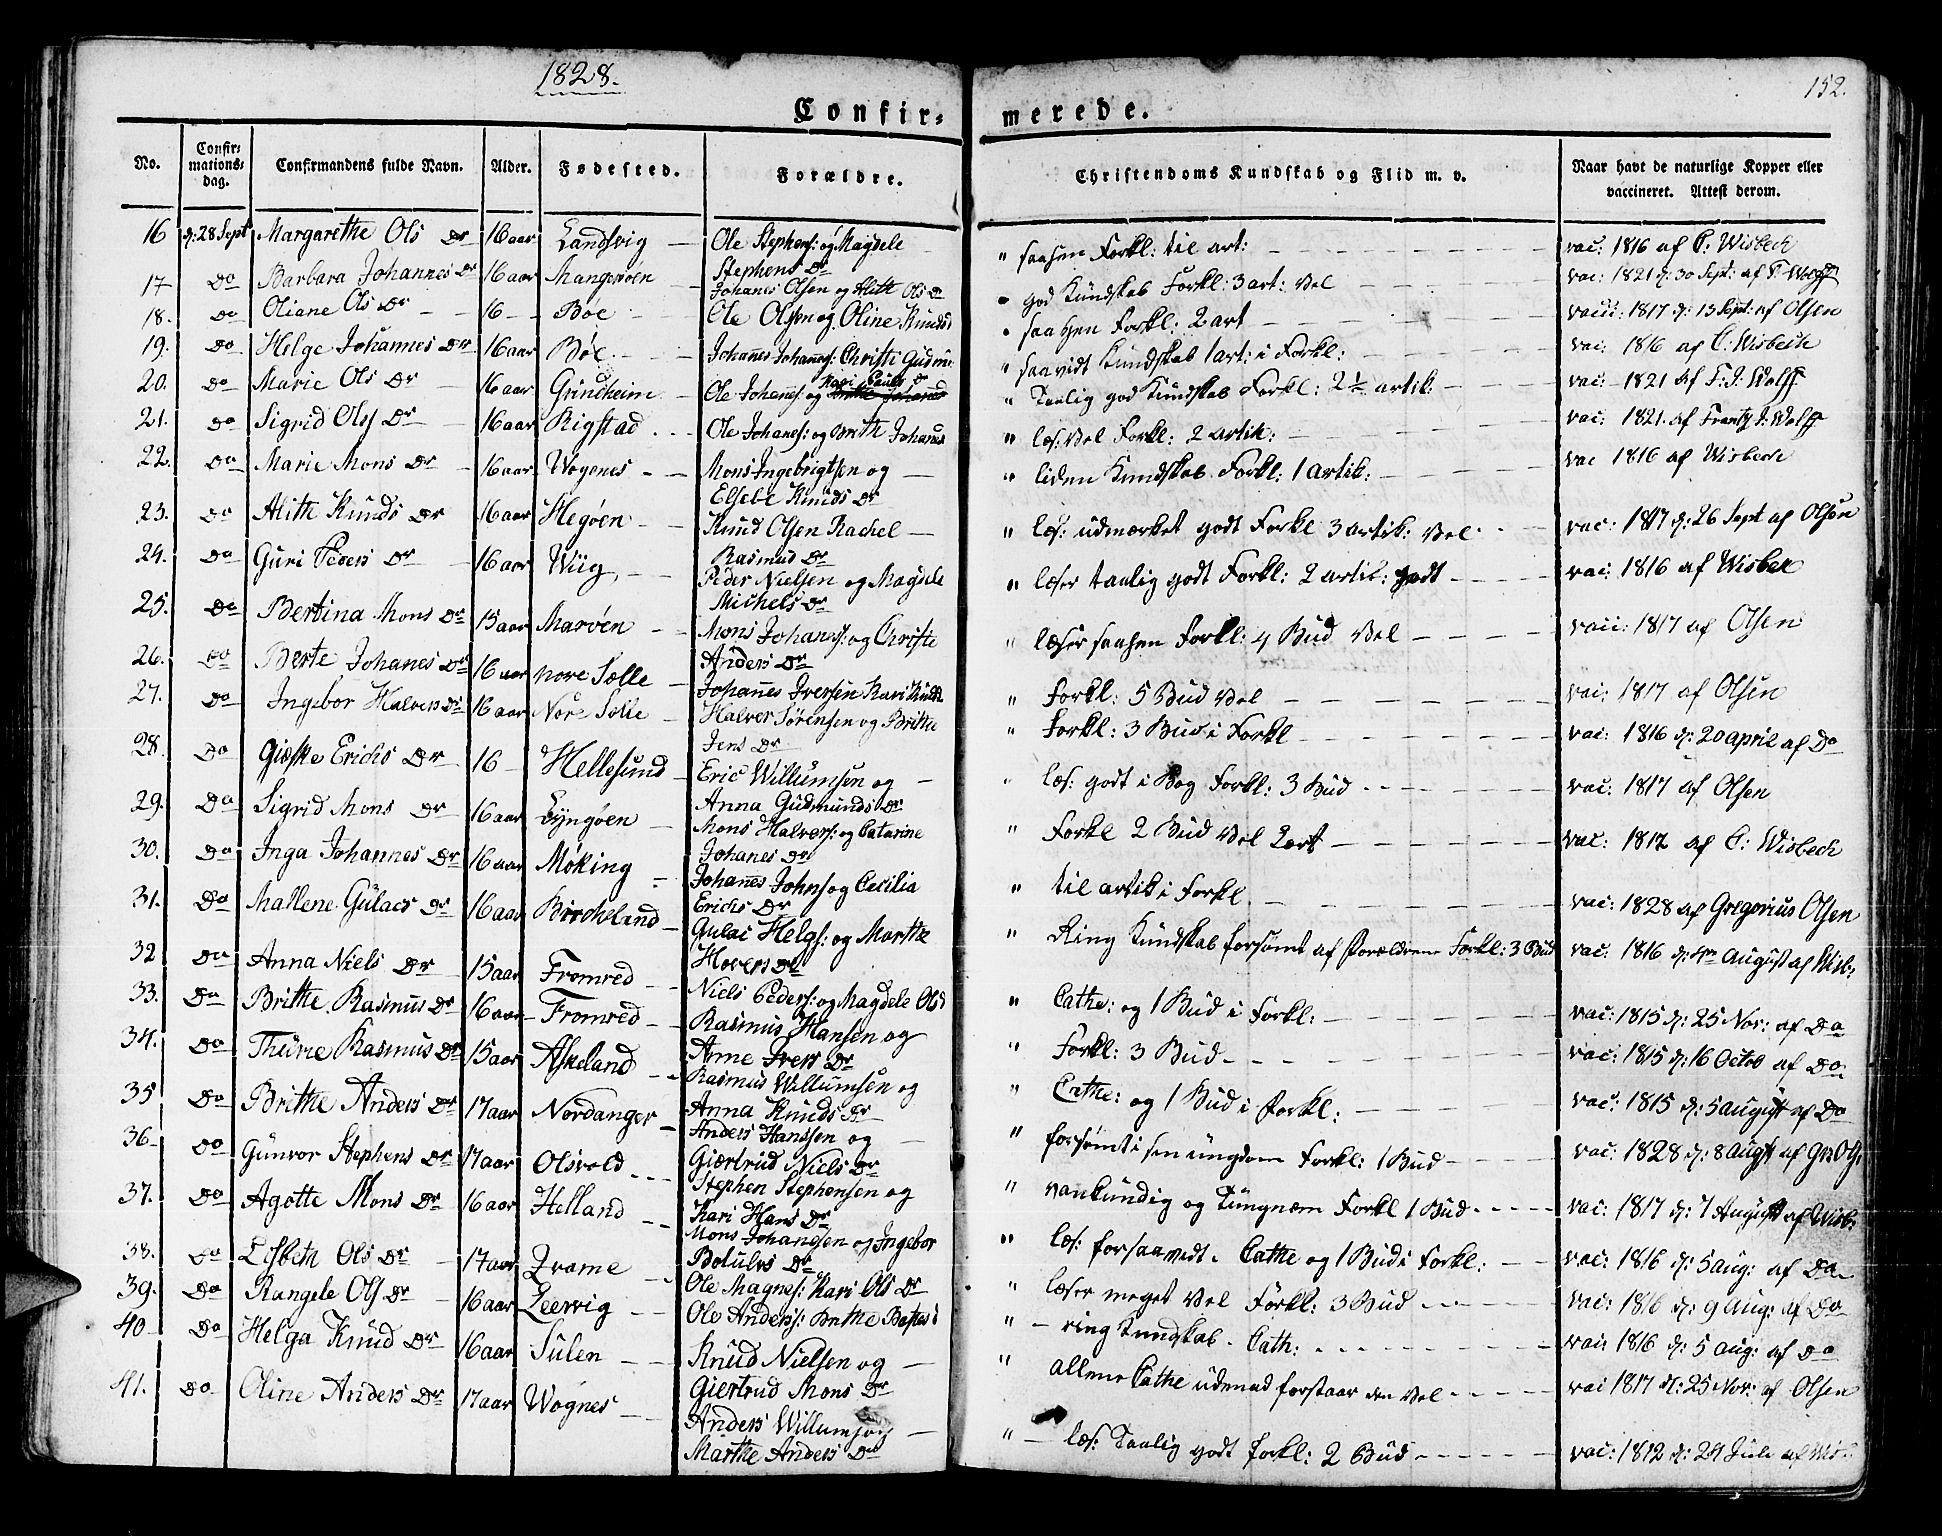 1828.
152.
Confir- merede.
No.
Confir-
mations-
dag.
Confirmandens fulde Navn.
Alder.
Fødested.
Forældre.
Christendoms Kundskab og Flid m. v.
Naar havt de naturlige Kopper eller
vaccineret. Attest derom.
16 d: 28 Sept Margarethe Ols Dr 16 aar Landsvig — Ole Stephens: og Magdele
Stephens Dr
" saasen Forkl: til art: vac: 1816 af C: Wisbech
17 Do Barbara Johannes Dr 16 aar Mangerøen Johanes Olsen og Alith Ols Dr
" god Kundskab Forkl: 3 art: Vel vac: 1821 d: 30 Sept: af F. Wolff
18. Do Oliane Ols Dr 16 Boe Ole Olssen og Oline Knuds
" saasen Forkl: 2 art 1817 d: 13 Sept: af Olsen
19. Do Helge Johannes Dr 16 aar Bøe Johannes Johannes: Christi
" saavidt Kundskab 1 art: i Forkl: vac: 1816 af C: Wisbech
20. Do Marie Ols Dr 16 aar Grindheim Ole Johanes: og Kari Pauls Dr
" Taalig god Kundskab Forkl: 2 1/2 artik: vac: 1821 af F. J. Wolff
21. Do Sigrid Ols Dr 16 aar Rigstad Ole Johanes: og Brith Johanes
" læs: Vel Forkl: 2 artik: vac: 1821 af Frantz J. Wolff
22. Do Marie Mons Dr 16 aar Wogenes Mons Ingebrigtsen og
Elsebe Knuds Dr
" liden Kundskab Forkl: 1 artik: vac 1816 af Wisbech
23. Do Alithe Knuds Dr 16 aar Hegøen Knud Olsen Rachel
Rasmus Dr
" læs: udmærket godt Forkl 3 artik: Vel vac: 1817 d: 26 Sept af Olsen
24. Do Guri Peders Dr 16 aar Wiig Peder Nielsen og Magdele
Michels Dr
" læser taalig godt Forkl: 2 artik: godt vac: 1816 af Wisbek
25. Do Bertina Mons Dr 15 aar Marøen Mons Johanes: og Christie
Anders Dr
" læser saasen Forkl: 4 Bud Vel 1817 af Olsen
26. Do Berte Johanes Dr 16 aar nore Sælle Johannes Iversen Kari Knuds
" Forkl: 5 Bud Vel vac: 1817 af Olsen
27. Do Ingebor Halvers Dr 16 aar Nore Sælle Halver Sørensen og Britte
Jens Dr
" Forkl: 3 Bud i Forkl vac: 1816 d: 20 april af Do
28. Do Giøske Erichs Dr 16 Hellesund Eric Willumsen og
Anna Gudmunds Dr
" læs: godt i Bog Forkl: 3 Bud vac: 1817 af Olsen
29. Do Sigrid Mons Dr 16 aar Lyngøen Mons Halvers: og Catarine
Johanes Dr
" Forkl 2 Bud Vel 2 art vac: 1812 af C: Wisbech
30. Do Inga Johannes Dr 16 aar Møking Johanes Johns og Cecilia
Erichs Dr
" til artik i Forkl. vac: 1828 af Gregorius Olsen
31. Do Mallene Gulacs Dr 16 aar Bircheland Gulac Helgs: og Marthe
Hovers Dr
" Ring Kundskab forsømt af Forældrene Forkl: 3 Bud vac: 1816 August af Wisb:
32 Do Anna Niels Dr 15 aar Fromred Niels Peders: og Magdele Ols
" Cathe: og 1 Bud i Forkl: vac: 1815 d: 25 Nov: af Do
33. Do Brithe Rasmus Dr 16 aar Fromred Rasmus Hansen og
Anne Ivers Dr
" Forkl: 3 Bud vac: 1815 d: 16 Octob af Do
34. Do Thurie Rasmus Dr 15 aar Askeland Rasmus Willumsen og
Anna Knuds Dr
" Cathe: og 1 Bud i Forkl: vac: 1815 d: 5 august af Do
35 Do Brithe Anders Dr 17 aar Nordanger Anders Hanssen og
Giertrud Niels Dr
" forsømt i sen ungdom Forkl: 1 Bud vac: 1828 d: 8 Augst af Gr: Ols:
36 Do Gunvor Stephens Dr 17 aar Olsvold Stephen Stephensen og
Kari Hans Dr
" vankundig og Tungnem Forkl 1 Bud vac: 1817 d: 7 August af Wisb:
37. Do Agotte Mons Dr 16 aar Helland Mons Johanesen og Ingebor
Botulvs Dr
" læs: forsaavidt. Cathe og 1 Bud i Forkl: vac: 1816 d: 5 aug: af Do
38. Do Lisbeth Ols Dr 17 aar Qrame Ole Magnes: Kari Ols Dr
" læser meget Vel Forkl: 3 Bud vac: 1816 d: 9 Aug: af Do
39. Do Rangele Ols Dr 16 aar Leervig Ole Anders: Brithe
" ring Kundskab. Cath: vac 1816 d: 5 aug: af Do
40 Do Helga Knud Dr 16 aar Sulen Knud Nielsen og
Giertrud Mons Dr
" allene Cathe udenad forstaar den Vel vac 1817 d: 25 Nov: af Olsen
41. Do Oline Anders Dr 17 aar Wognes Anders Willumsen
Marthe Anders Dr
" læs: Taalig godt Forkl: 2 Bud vac: 1812 d: 29 Juli af Wis